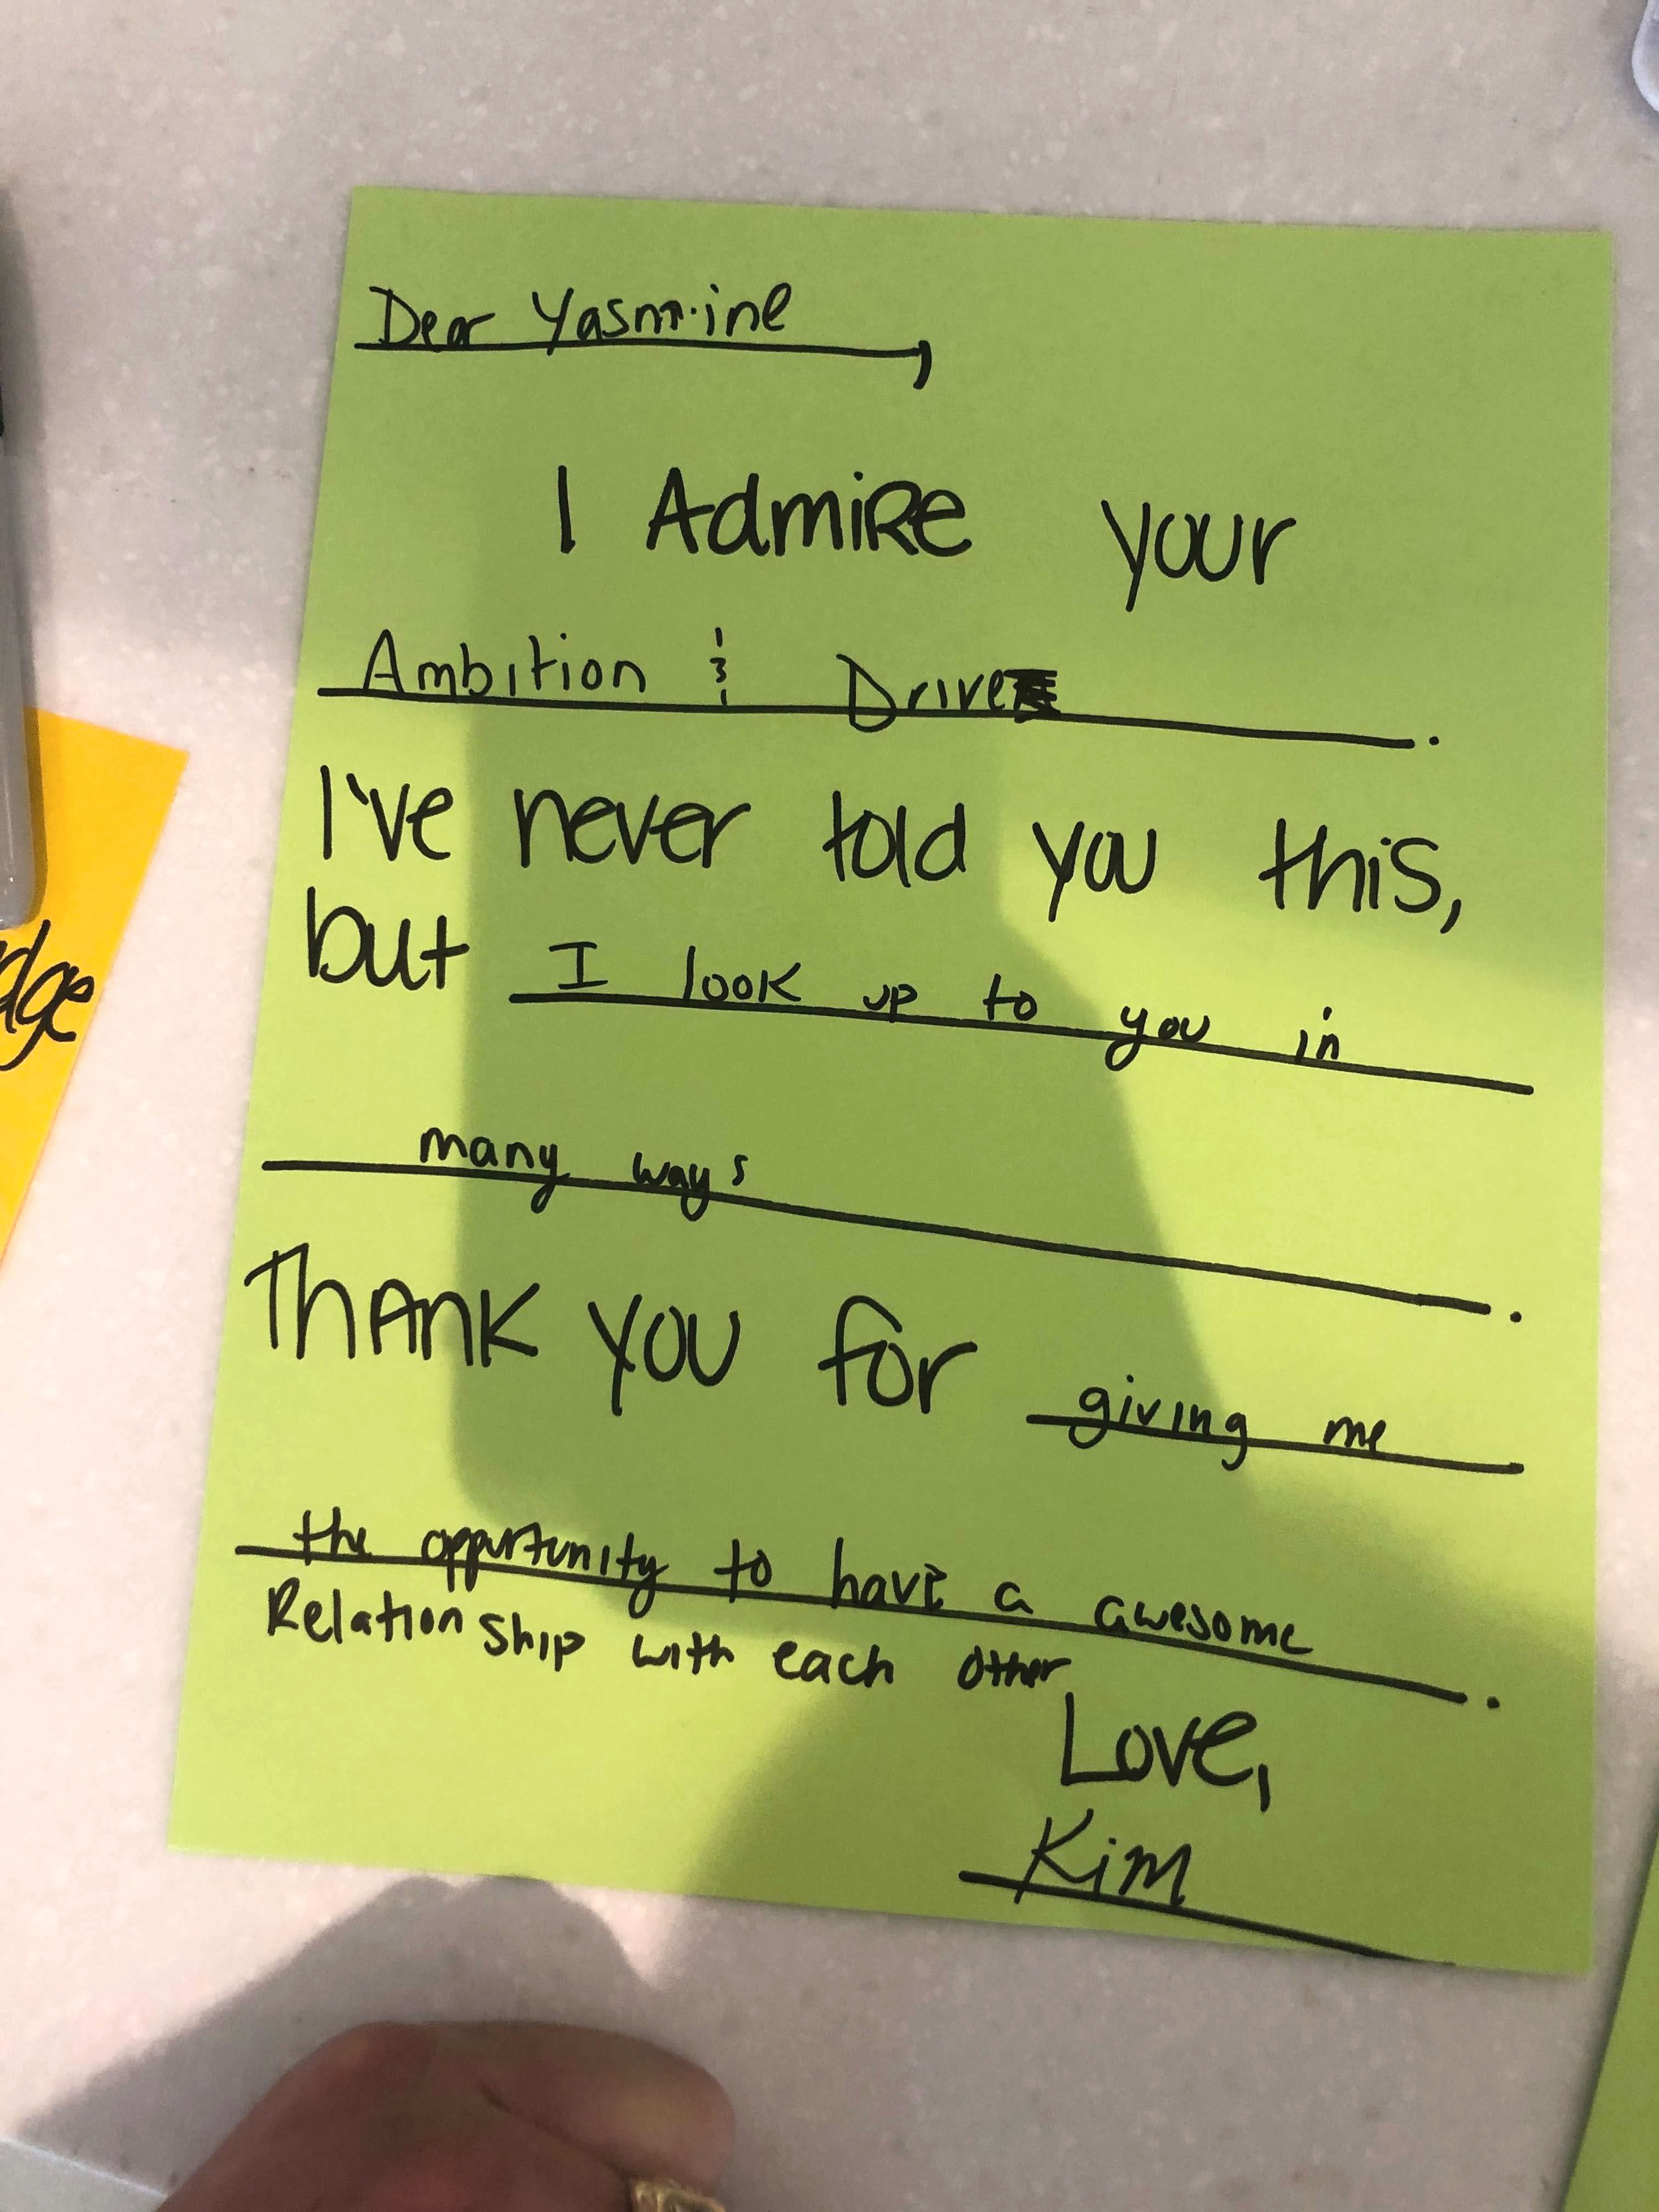 Dear Yasmine,
I Admire your
Ambition & Drive.
I've never told you this,
but I look up to you in
many ways.
Thank you for giving me
the opportunity to have a awesome
Relationship with each other.
Love,
Kim
dge